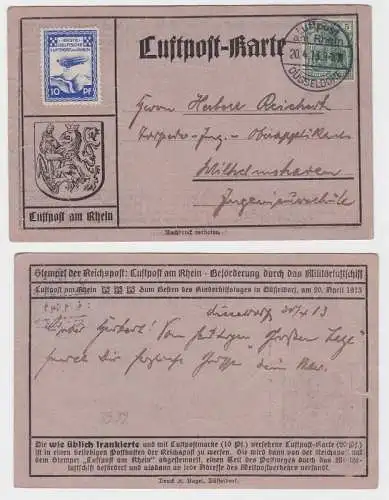 ERSTE
LUFTPOST AM RHEIN
10 PF
Luftpost-Karte
LUFTPOST
am Rhein
20.4.13
DÜSSELDORF
5
Herrn Herbert Reichert
Torpedo-Ing.
Wilhelmshaven
Ingenieurschule
Luftpost am Rhein
Nachdruck verboten.
Stempel der Reichspost: Luftpost am Rhein - Beförderung durch das Militärluftschiff
Luftpost am Rhein Zum Besten des Kinderhilfstages in Düsseldorf, am 20. April 1913
Düsseldorf 20/4 13
Lieber Herbert! Vom heutigen „Großen Tage"
Dir herzliche Grüße dein
Die wie üblich frankierte und mit Luftpostmarke (10 Pf.) versehene Luftpost-Karte (20 Pf.)
ist in einen beliebigen Postkasten der Reichspost zu werfen. Sie wird dann von der Reichspost mit
dem Stempel „Luftpost am Rhein" abgestempelt, einen Teil des Postweges durch das Militär-
luftschiff befördert und alsdann an jede Adresse des Weltpostverkehrs versandt.
Druck A. Bagel, Düsseldorf.